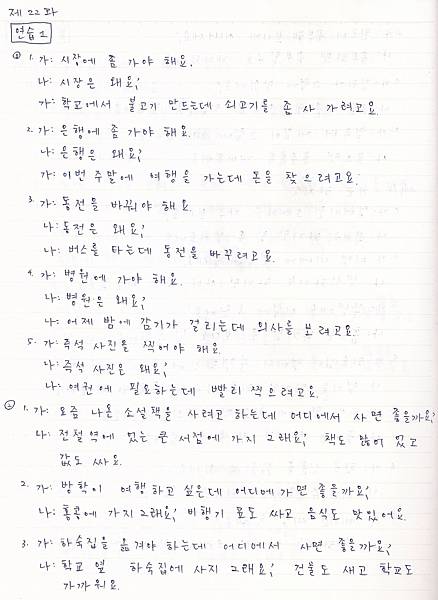 제 22 과
연습 1
① 1. 가: 시장에 좀 가야 해요.
나: 시장은 왜요?
가: 학교에서 불고기 만드는데 쇠고기를 좀 사 가려고요.
2. 가: 은행에 좀 가야 해요.
나: 은행은 왜요?
가: 이번 주말에 여행을 가는데 돈을 찾으려고요.
3. 가: 동전을 바꿔야 해요
나: 동전은 왜요?
나: 버스를 타는데 동전을 바꾸려고요.
4. 가: 병원에 가야 해요.
나: 병원은 왜요?
나: 어제 밤에 감기가 걸리는데 의사를 보려고요.
5. 가: 즉석 사진을 찍어야 해요.
나: 즉석 사진은 왜요?
나: 여권에 필요하는데 빨리 찍으려고요.
② 1. 가: 요즘 나온 소설책을 사려고 하는데 어디에서 사면 좋을까요?
나: 전철역에 있는 큰 서점에 가지 그래요? 책도 많이 있고
값도 싸요.
2. 가: 방학이 여행하고 싶은데 어디에 가면 좋을까요?
나: 홍콩에 가지 그래요? 비행기 표도 싸고 음식도 맛있어요.
3. 가: 하숙집을 옮겨야 하는데 어디에서 사면 좋을까요?
나: 학교 옆 하숙집에 사지 그래요? 건물도 새고 학교도
가까워요.